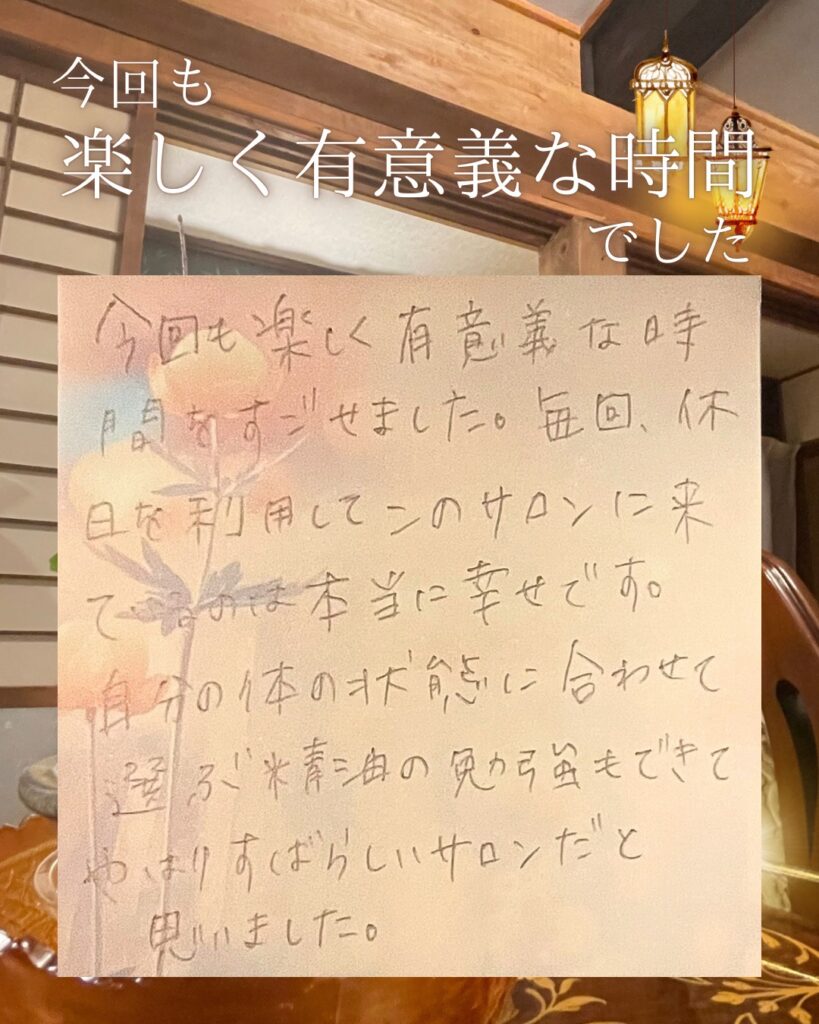 今回も
楽しく有意義な時間
でした
今回も楽しく有意義な時
間をすごせました。毎回、休
日を利用してこのサロンに来
ているのは本当に幸せです。
自分の体の状態に合わせて
選ぶ精油の勉強もできて
やはりすばらしいサロンだと
思いました。